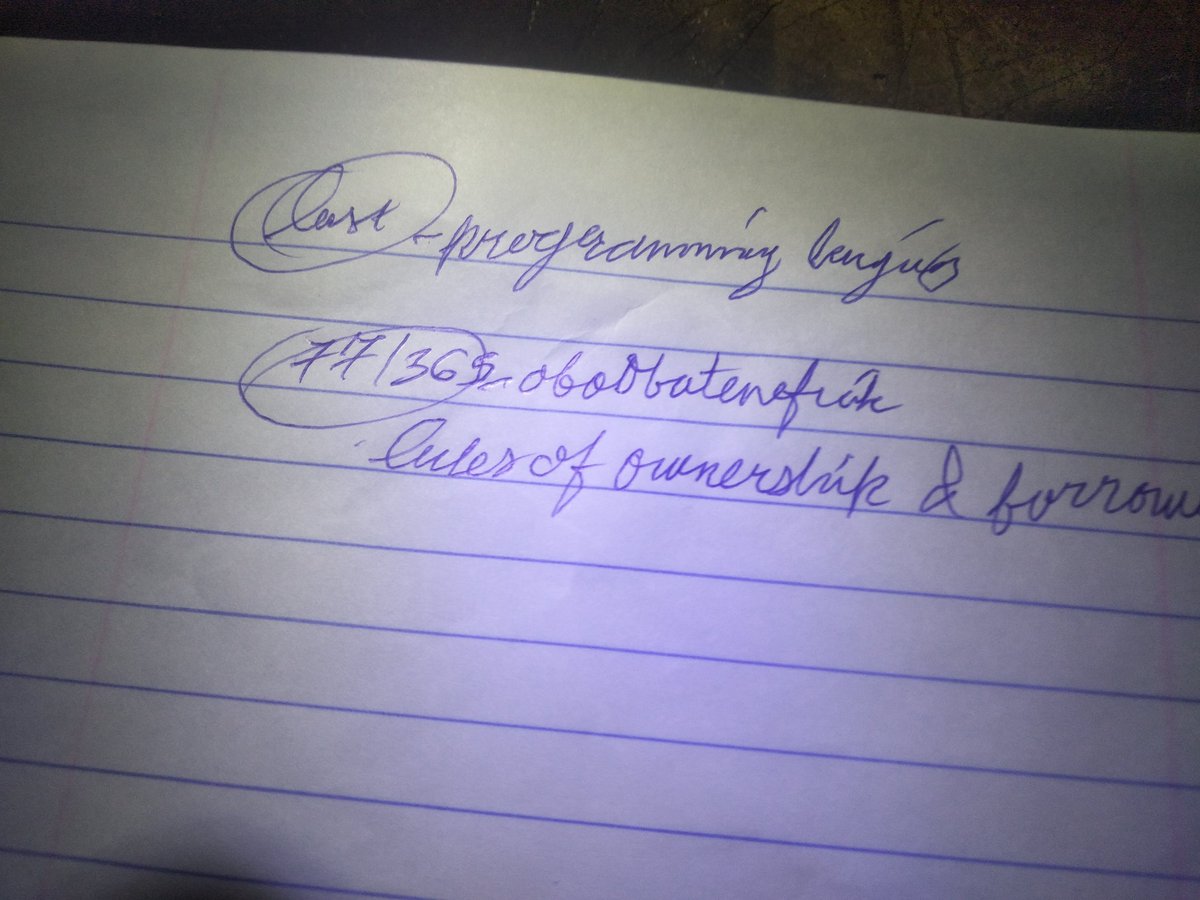 Rust - programming
77/365 -
Rules of ownership & borrow